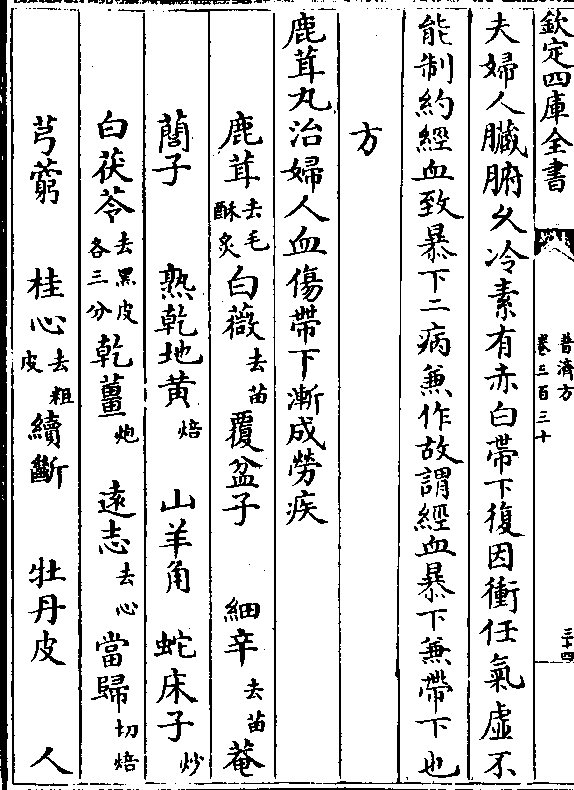 欽定四庫全書
普濟方
卷三百三十
三十四
夫婦人臟腑久冷素有赤白帶下復因衝任氣虛不
能制約經血致暴下二病兼作故謂經血暴下兼帶下也
方
鹿茸丸治婦人血傷帶下漸成勞疾
鹿茸去毛酥炙白薇去苗覆盆子 細辛去苗菴
藺子 熟乾地黄焙 山羊角 蛇床子炒
白茯苓去黑皮各三分乾薑炮 遠志去心當歸切焙
芎藭 桂心去粗皮續斷 牡丹皮 人